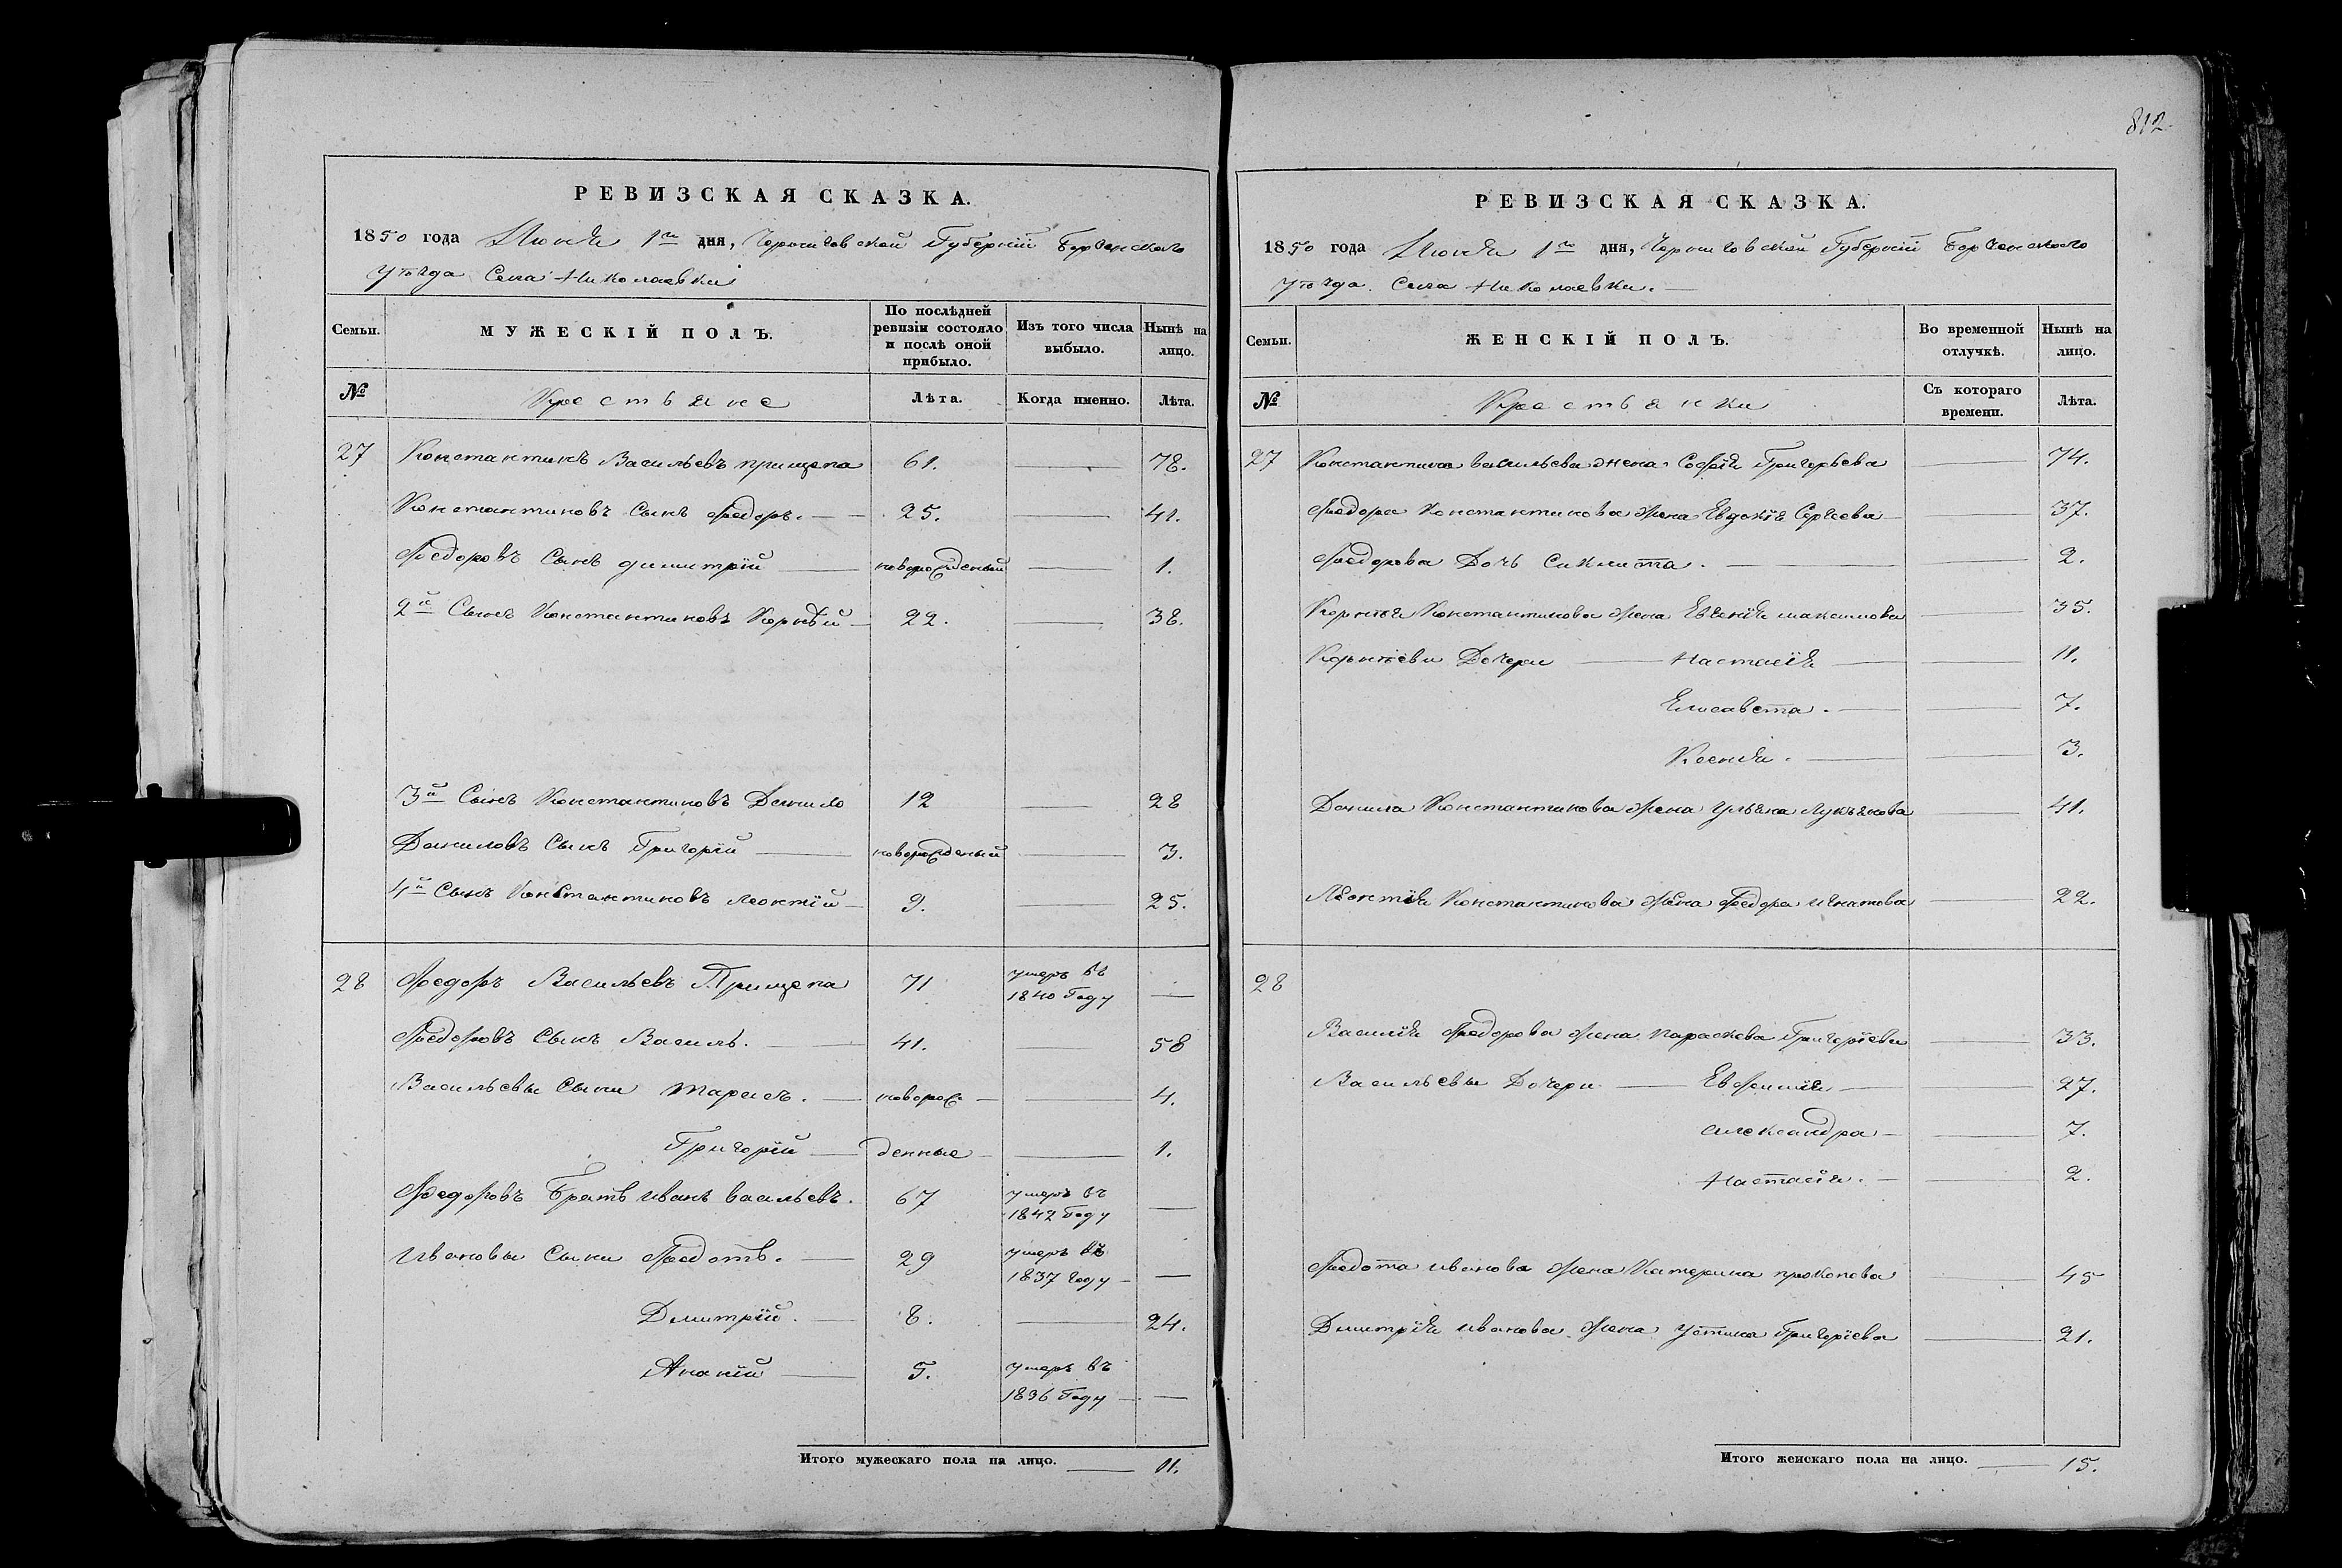 812.
РЕВИЗСКАЯ СКАЗКА.
1850 года Июня 1го дня, Черниговской Губернiи Борзенскаго
Уѣзда Села Николаевки
Семьи. МУЖЕСКІЙ ПОЛЪ. По послѣдней ревизіи состояло и послѣ оной прибыло. Изъ того числа выбыло. Нынѣ на лицо.
№ Крестьяне Лѣта. Когда именно. Лѣта.
27 Константинъ Васильевъ прищепа 61. — 78.
Константиновъ Сынъ Федоръ. — 25. — 41.
Федоровъ Сынъ димитрій — новорожденый — 1.
2й Сынъ Константиновъ Корнѣй — 22. — 38.
3й Сынъ Константиновъ Данило 12 — 28
Даниловъ Сынъ Григорій — новорожденый — 3.
4й Сынъ Константиновъ Леонтій — 9. — 25.
28 Федоръ Васильевъ Прищепа 71 умеръ въ 1840 Году —
Федоровъ Сынъ Василь. — 41. — 58
Васильевы Сыны Тарасъ. — новорож — — 4.
Григорій — денные — — 1.
Федоровъ Братъ иванъ васильевъ. 67 умеръ въ 1842 Году —
Ивановы Сыны Федотъ. — 29 умеръ въ 1837 году — —
Дмитрій. — 8. — 24.
Ананій — 5. умеръ въ 1836 Году — —
Итого мужескаго пола на лицо. — 11.
РЕВИЗСКАЯ СКАЗКА.
1850 года Июня 1го дня, Черниговской Губернiи Борзенскаго
Уѣзда. Села Николаевки. —
Семьи. ЖЕНСКІЙ ПОЛЪ. Во временной отлучкѣ. Нынѣ на лицо.
№ Крестьянки Съ котораго времени. Лѣта.
27 Константина васильева жена Софія Григорьева — 74.
Федора Константинова жена Евдокія Сергіева — 37.
Федорова Дочь — 2.
Корнѣя Константинова жена Евгенія максимова — 35.
Корнѣеви Дочери — Настасія — 11.
Елисавета. — — 7.
Ксенія. — — 3.
Данила Константинова жена Ульяна Лукьянова — 41.
Леонтія Константинова жена Федора игнатова — 22.
28
Василія Федорова жена параскева Григоріева — 33.
Васильевы Дочери — Евфимія — — 27.
александра — — 7.
Настасія. — 2.
Федота иванова жена Катерина прокопова — 45
Дмитрія иванова жена Устина Григоріева — 21.
Итого женскаго пола на лицо. — 15.